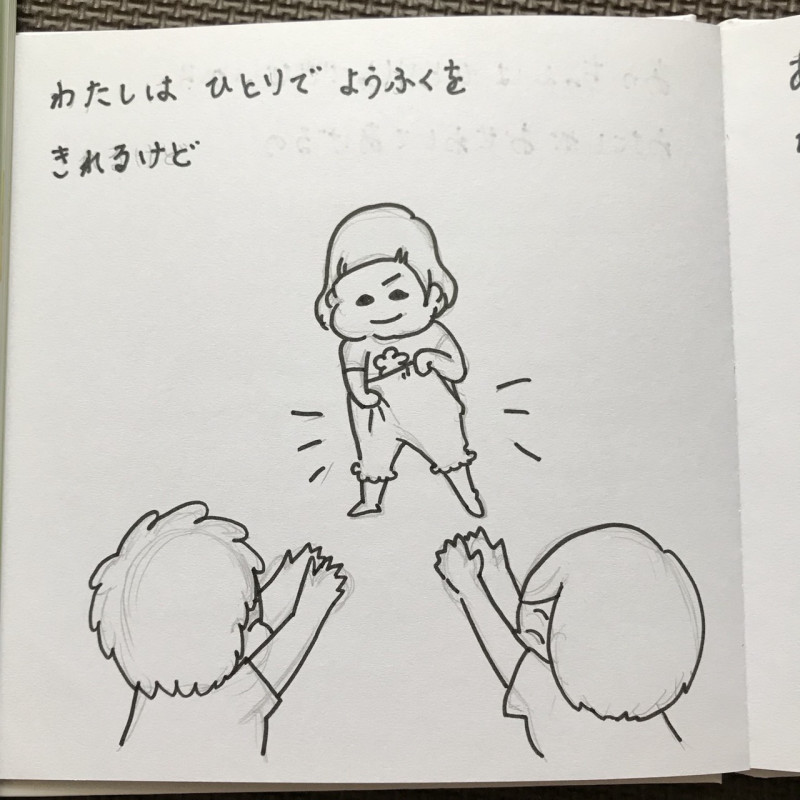 わたしは ひとりで ようふくを
きれるけど